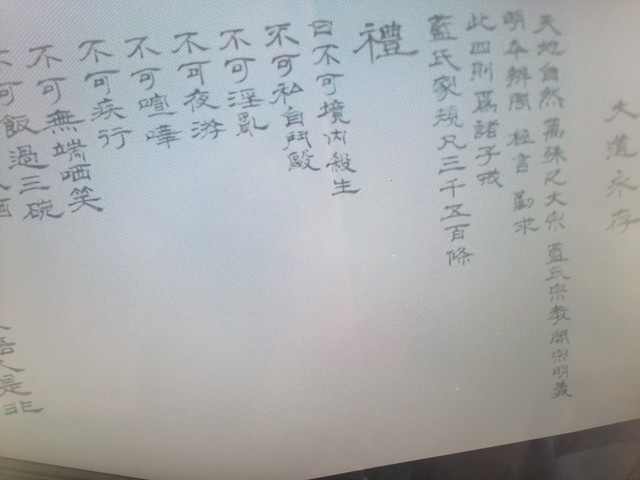 大道永存
天地自然 萬殊之大宗 藍氏宗教 開宗明義
明本辨聞 極言 勤求
此四則爲諸子戒
藍氏家規凡三千五百條
禮
曰不可境內殺生
不可私自鬥毆
不可淫亂
不可夜游
不可喧嘩
不可疾行
不可無端哂笑
不可飯過三碗
不可
人是非